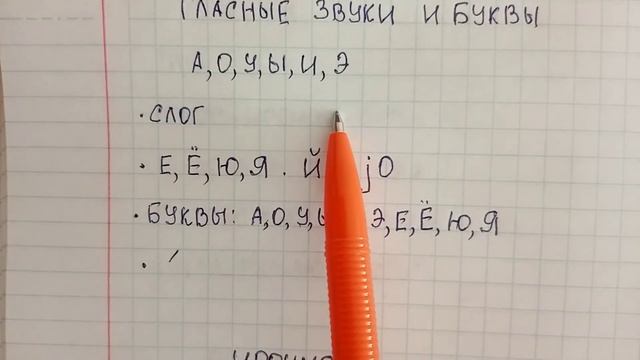 ГЛАСНЫЕ ЗВУКИ И БУКВЫ
А, О, У, Ы, И, Э
· СЛОГ
· Е, Ё, Ю, Я. Й jО
· БУКВЫ: А, О, У, Э, Е, Ё, Ю, Я
·